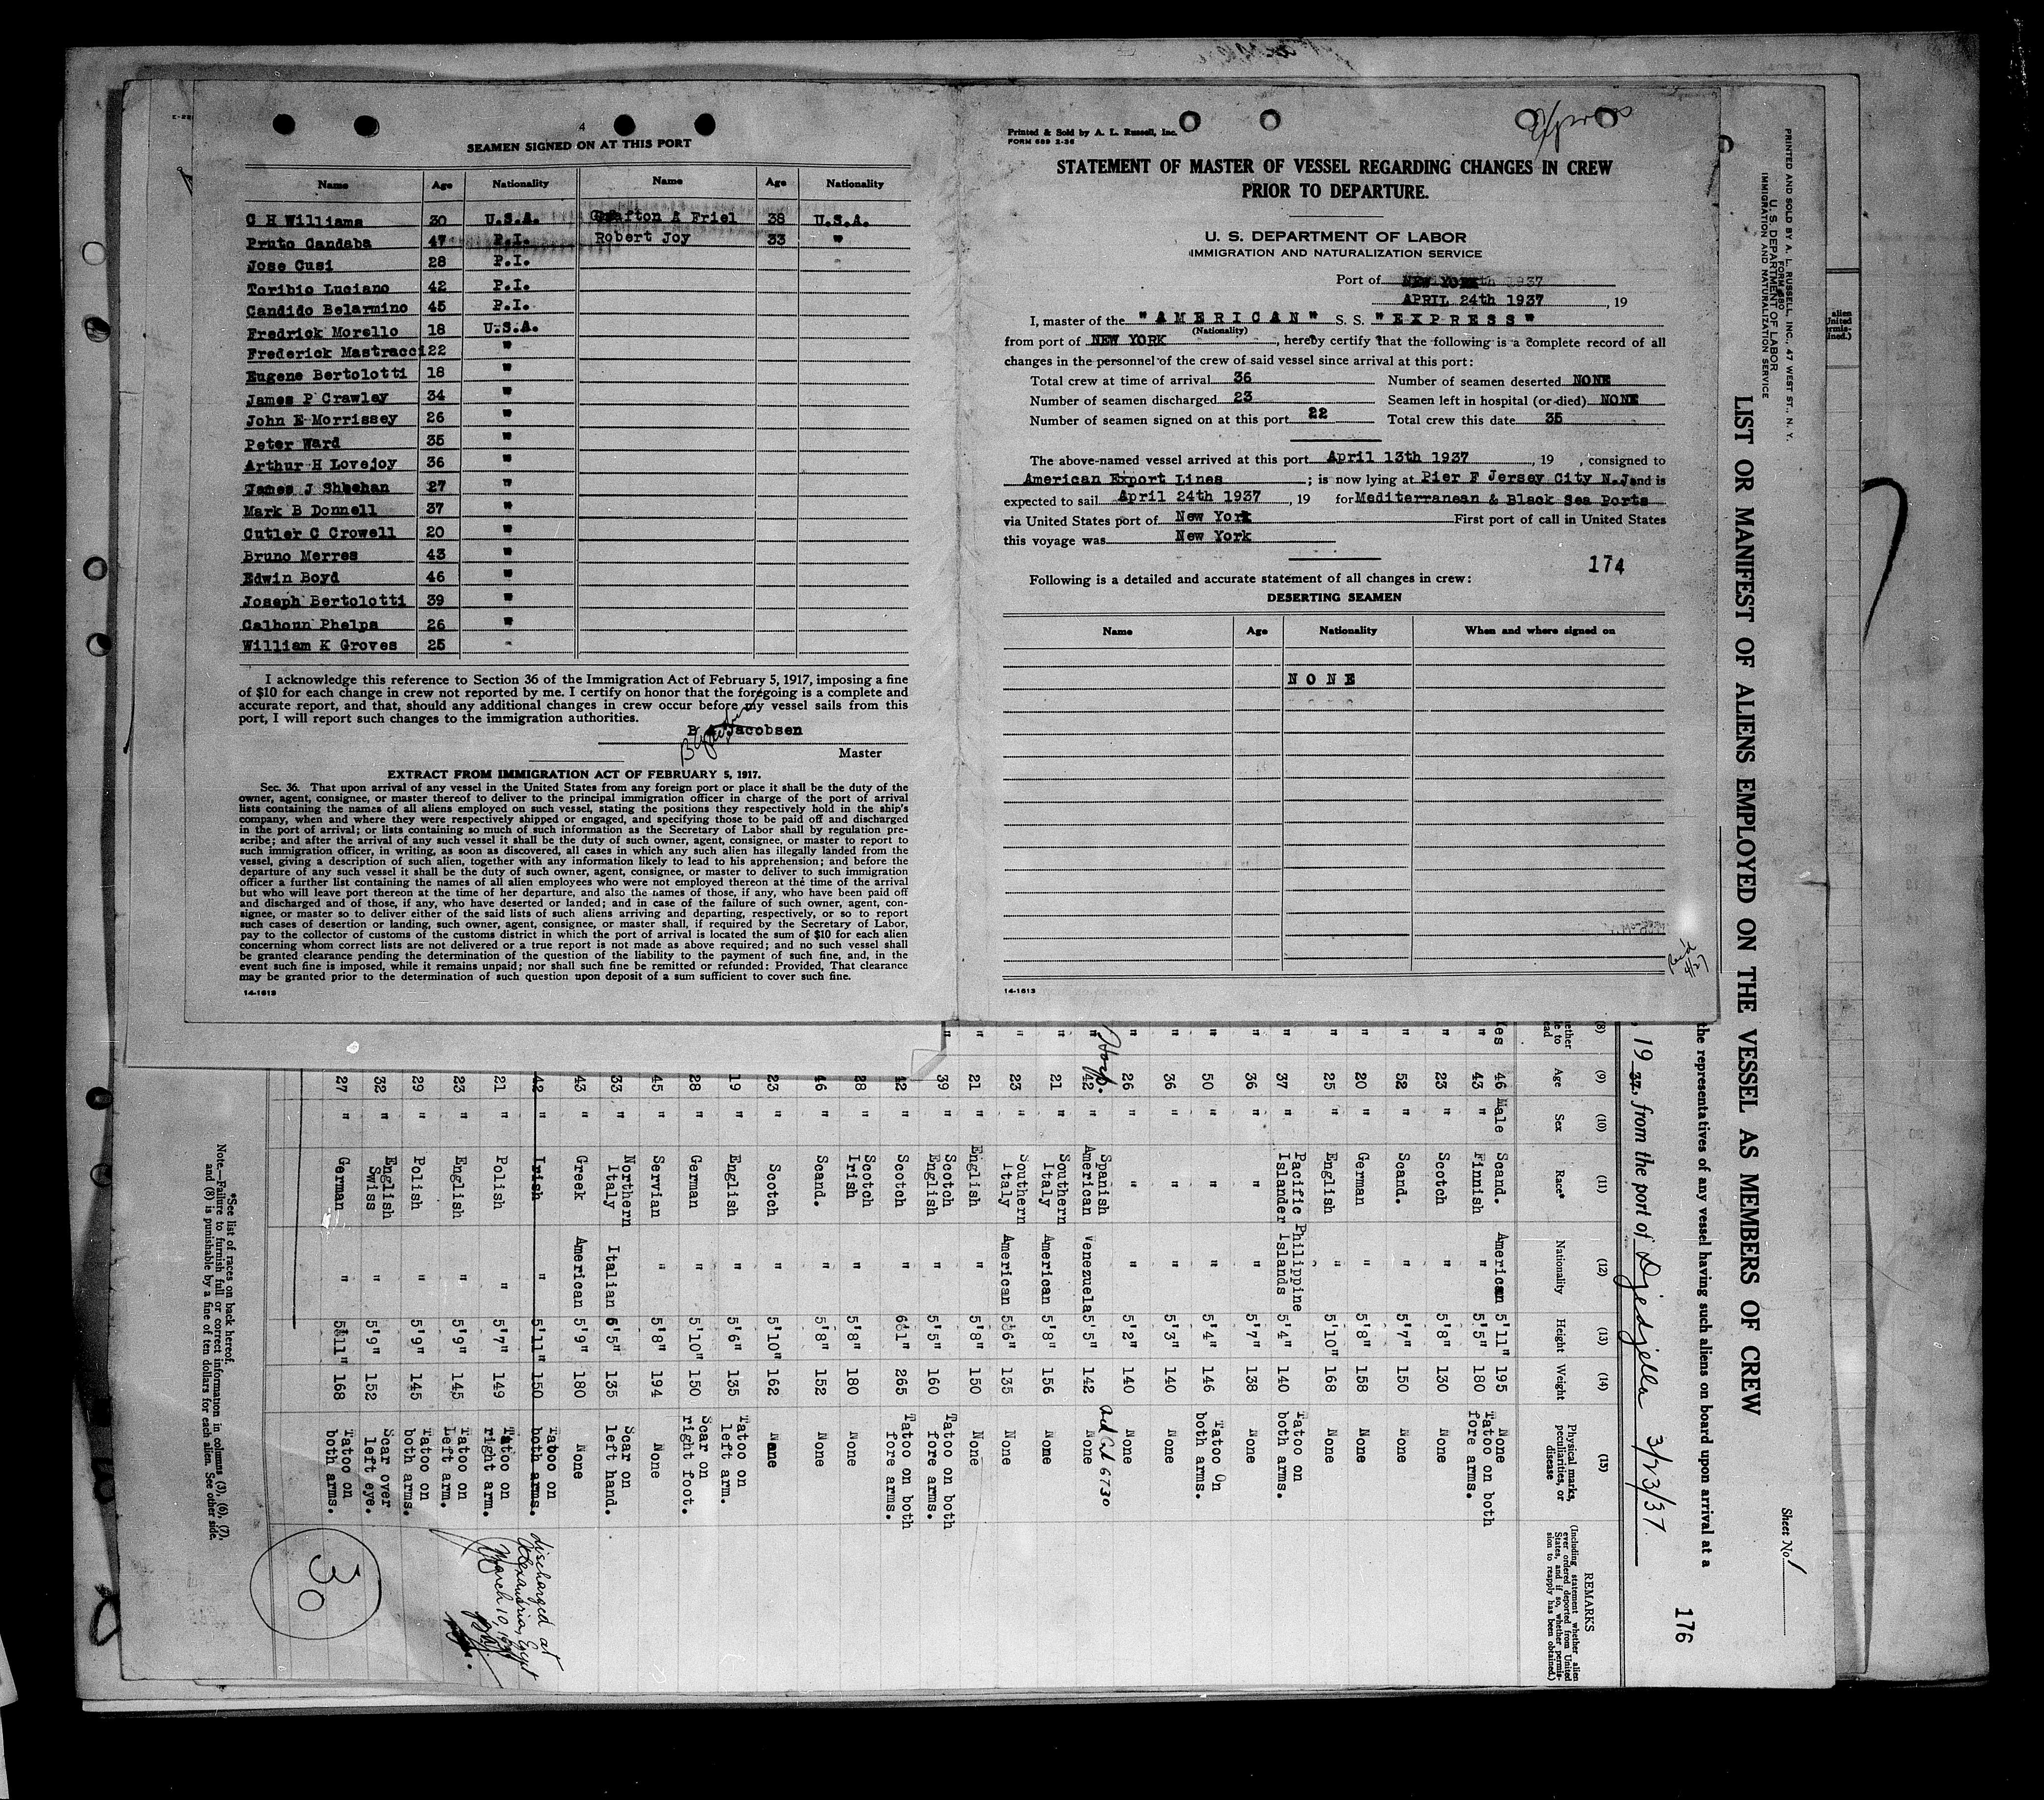 4
SEAMEN SIGNED ON AT THIS PORT
Name Age Nationality Name Age Nationality
C H Williams 30 U.S.A. Grafton A Friel 38 U.S.A.
Pruto Candaba 47 P.I. Robert Joy 33 "
Jose Cusi 28 P.I.
Toribio Luciano 42 P.I.
Candido Belarmino 45 P.I.
Fredrick Morello 18 U.S.A.
Frederick Mastracci 22 "
Eugene Bertolotti 18 "
James P Crawley 34 "
John E Morrissey 26 "
Peter Ward 35 "
Arthur H Lovejoy 36 "
James J Sheehan 27 "
Mark B Donnell 37 "
Cutler C Crowell 20 "
Bruno Merres 43 "
Edwin Boyd 46 "
Joseph Bertolotti 39 "
Calhoun Phelps 26 "
William K Groves 25 "
I acknowledge this reference to Section 36 of the Immigration Act of February 5, 1917, imposing a fine
of $10 for each change in crew not reported by me. I certify on honor that the foregoing is a complete and
accurate report, and that, should any additional changes in crew occur before my vessel sails from this
port, I will report such changes to the immigration authorities.
B Jacobsen
Master
EXTRACT FROM IMMIGRATION ACT OF FEBRUARY 5, 1917.
Sec. 36. That upon arrival of any vessel in the United States from any foreign port or place it shall be the duty of the
owner, agent, consignee, or master thereof to deliver to the principal immigration officer in charge of the port of arrival
lists containing the names of all aliens employed on such vessel, stating the positions they respectively hold in the ship's
company, when and where they were respectively shipped or engaged, and specifying those to be paid off and discharged
in the port of arrival; or lists containing so much of such information as the Secretary of Labor shall by regulation pre-
scribe; and after the arrival of any such vessel it shall be the duty of such owner, agent, consignee, or master to report to
such immigration officer, in writing, as soon as discovered, all cases in which any such alien has illegally landed from the
vessel, giving a description of such alien, together with any information likely to lead to his apprehension; and before the
departure of any such vessel it shall be the duty of such owner, agent, consignee, or master to deliver to such immigration
officer a further list containing the names of all alien employees who were not employed thereon at the time of the arrival
but who will leave port thereon at the time of her departure, and also the names of those, if any, who have been paid off
and discharged and of those, if any, who have deserted or landed; and in case of the failure of such owner, agent, con-
signee, or master so to deliver either of the said lists of such aliens arriving and departing, respectively, or so to report
such cases of desertion or landing, such owner, agent, consignee, or master shall, if required by the Secretary of Labor,
pay to the collector of customs of the customs district in which the port of arrival is located the sum of $10 for each alien
concerning whom correct lists are not delivered or a true report is not made as above required; and no such vessel shall
be granted clearance pending the determination of the question of the liability to the payment of such fine, and, in the
event such fine is imposed, while it remains unpaid; nor shall such fine be remitted or refunded: Provided, That clearance
may be granted prior to the determination of such question upon deposit of a sum sufficient to cover such fine.
14-1613
Express
Printed & Sold by A. L. Russell, Inc.
FORM 689 2-36
STATEMENT OF MASTER OF VESSEL REGARDING CHANGES IN CREW
PRIOR TO DEPARTURE.
U. S. DEPARTMENT OF LABOR
IMMIGRATION AND NATURALIZATION SERVICE
Port of NEW YORK
APRIL 24th 1937, 19
I, master of the "AMERICAN" S. S. "EXPRESS"
(Nationality)
from port of NEW YORK, hereby certify that the following is a complete record of all
changes in the personnel of the crew of said vessel since arrival at this port:
Total crew at time of arrival 36 Number of seamen deserted NONE
Number of seamen discharged 23 Seamen left in hospital (or died) NONE
Number of seamen signed on at this port 22 Total crew this date 35
The above-named vessel arrived at this port April 13th 1937, 19 , consigned to
American Export Lines; is now lying at Pier F Jersey City N.J. and is
expected to sail April 24th 1937, 19 for Mediterranean & Black Sea Ports
via United States port of New York First port of call in United States
this voyage was New York
174
Following is a detailed and accurate statement of all changes in crew:
DESERTING SEAMEN
Name Age Nationality When and where signed on
NONE
14-1613
Rec'd
4/27
PRINTED AND SOLD BY A. L. RUSSELL, INC., 47 WEST ST., N. Y.
FORM 680
U. S. DEPARTMENT OF LABOR
IMMIGRATION AND NATURALIZATION SERVICE
Sheet No. 1
LIST OR MANIFEST OF ALIENS EMPLOYED ON THE VESSEL AS MEMBERS OF CREW
176
the representatives of any vessel having such aliens on board upon arrival at a
, 19 37, from the port of Djedjella 3/23/37.
(8) (9) (10) (11) (12) (13) (14) (15)
Age Sex Race* Nationality Height Weight Physical marks, peculiarities, or disease REMARKS
(Including statement whether alien ever ordered deported from United States, and if so, whether permission to reapply has been obtained.)
Yes 46 Male Scand. American 5'11" 195 None
" 43 " Finnish " 5'5" 180 Tatoo on both fore arms.
" 23 " Scotch " 5'8" 130 None
" 52 " Scand. " 5'7" 150 None
" 20 " German " 5'8" 158 None
" 25 " English " 5'10" 168 None
" 37 " Pacific Islander Philippine Islands 5'4" 140 Tatoo on both arms.
" 36 " " " 5'7" 138 None
" 50 " " " 5'4" 146 Tatoo On both arms.
" 36 " " " 5'3" 140 None
" 26 " " " 5'2" 140 None
Hosp. " 42 " Spanish American Venezuela 5'5" 142 None
" 21 " Southern Italy American 5'8" 156 None
" 23 " Southern Italy American 5'6" 135 None
" 21 " English " 5'8" 150 None
" 39 " Scotch English " 5'5" 160 Tatoo on both fore arms.
42 " Scotch " 6'1" 265 Tatoo on both fore arms.
28 " Scotch Irish " 5'8" 180 None
46 " Scand. " 5'8" 152 None
23 " Scotch " 5'10" 162 None
19 " English " 5'6" 135 Tatoo on left arm.
28 " German " 5'10" 150 Scar on right foot.
45 " Servian " 5'8" 194 None
33 " Northern Italy Italian 5'5" 135 Scar on left hand.
43 " Greek American 5'9" 180 None
42 " Irish " 5'11" 150 Tatoo on both arms. discharged at Alexandria, Egypt March 10, 1937
21 " Polish " 5'7" 149 Tatoo on right arm.
23 " English " 5'9" 145 Tatoo on Left arm.
29 " Polish " 5'9" 145 Tatoo on both arms.
32 " English Swiss " 5'9" 152 Scar over left eye.
27 " German " 5'11" 168 Tatoo on both arms.
30
*See list of races on back hereof.
Note.—Failure to furnish full or correct information in columns (3), (6), (7),
and (8) is punishable by a fine of ten dollars for each alien. See other side.